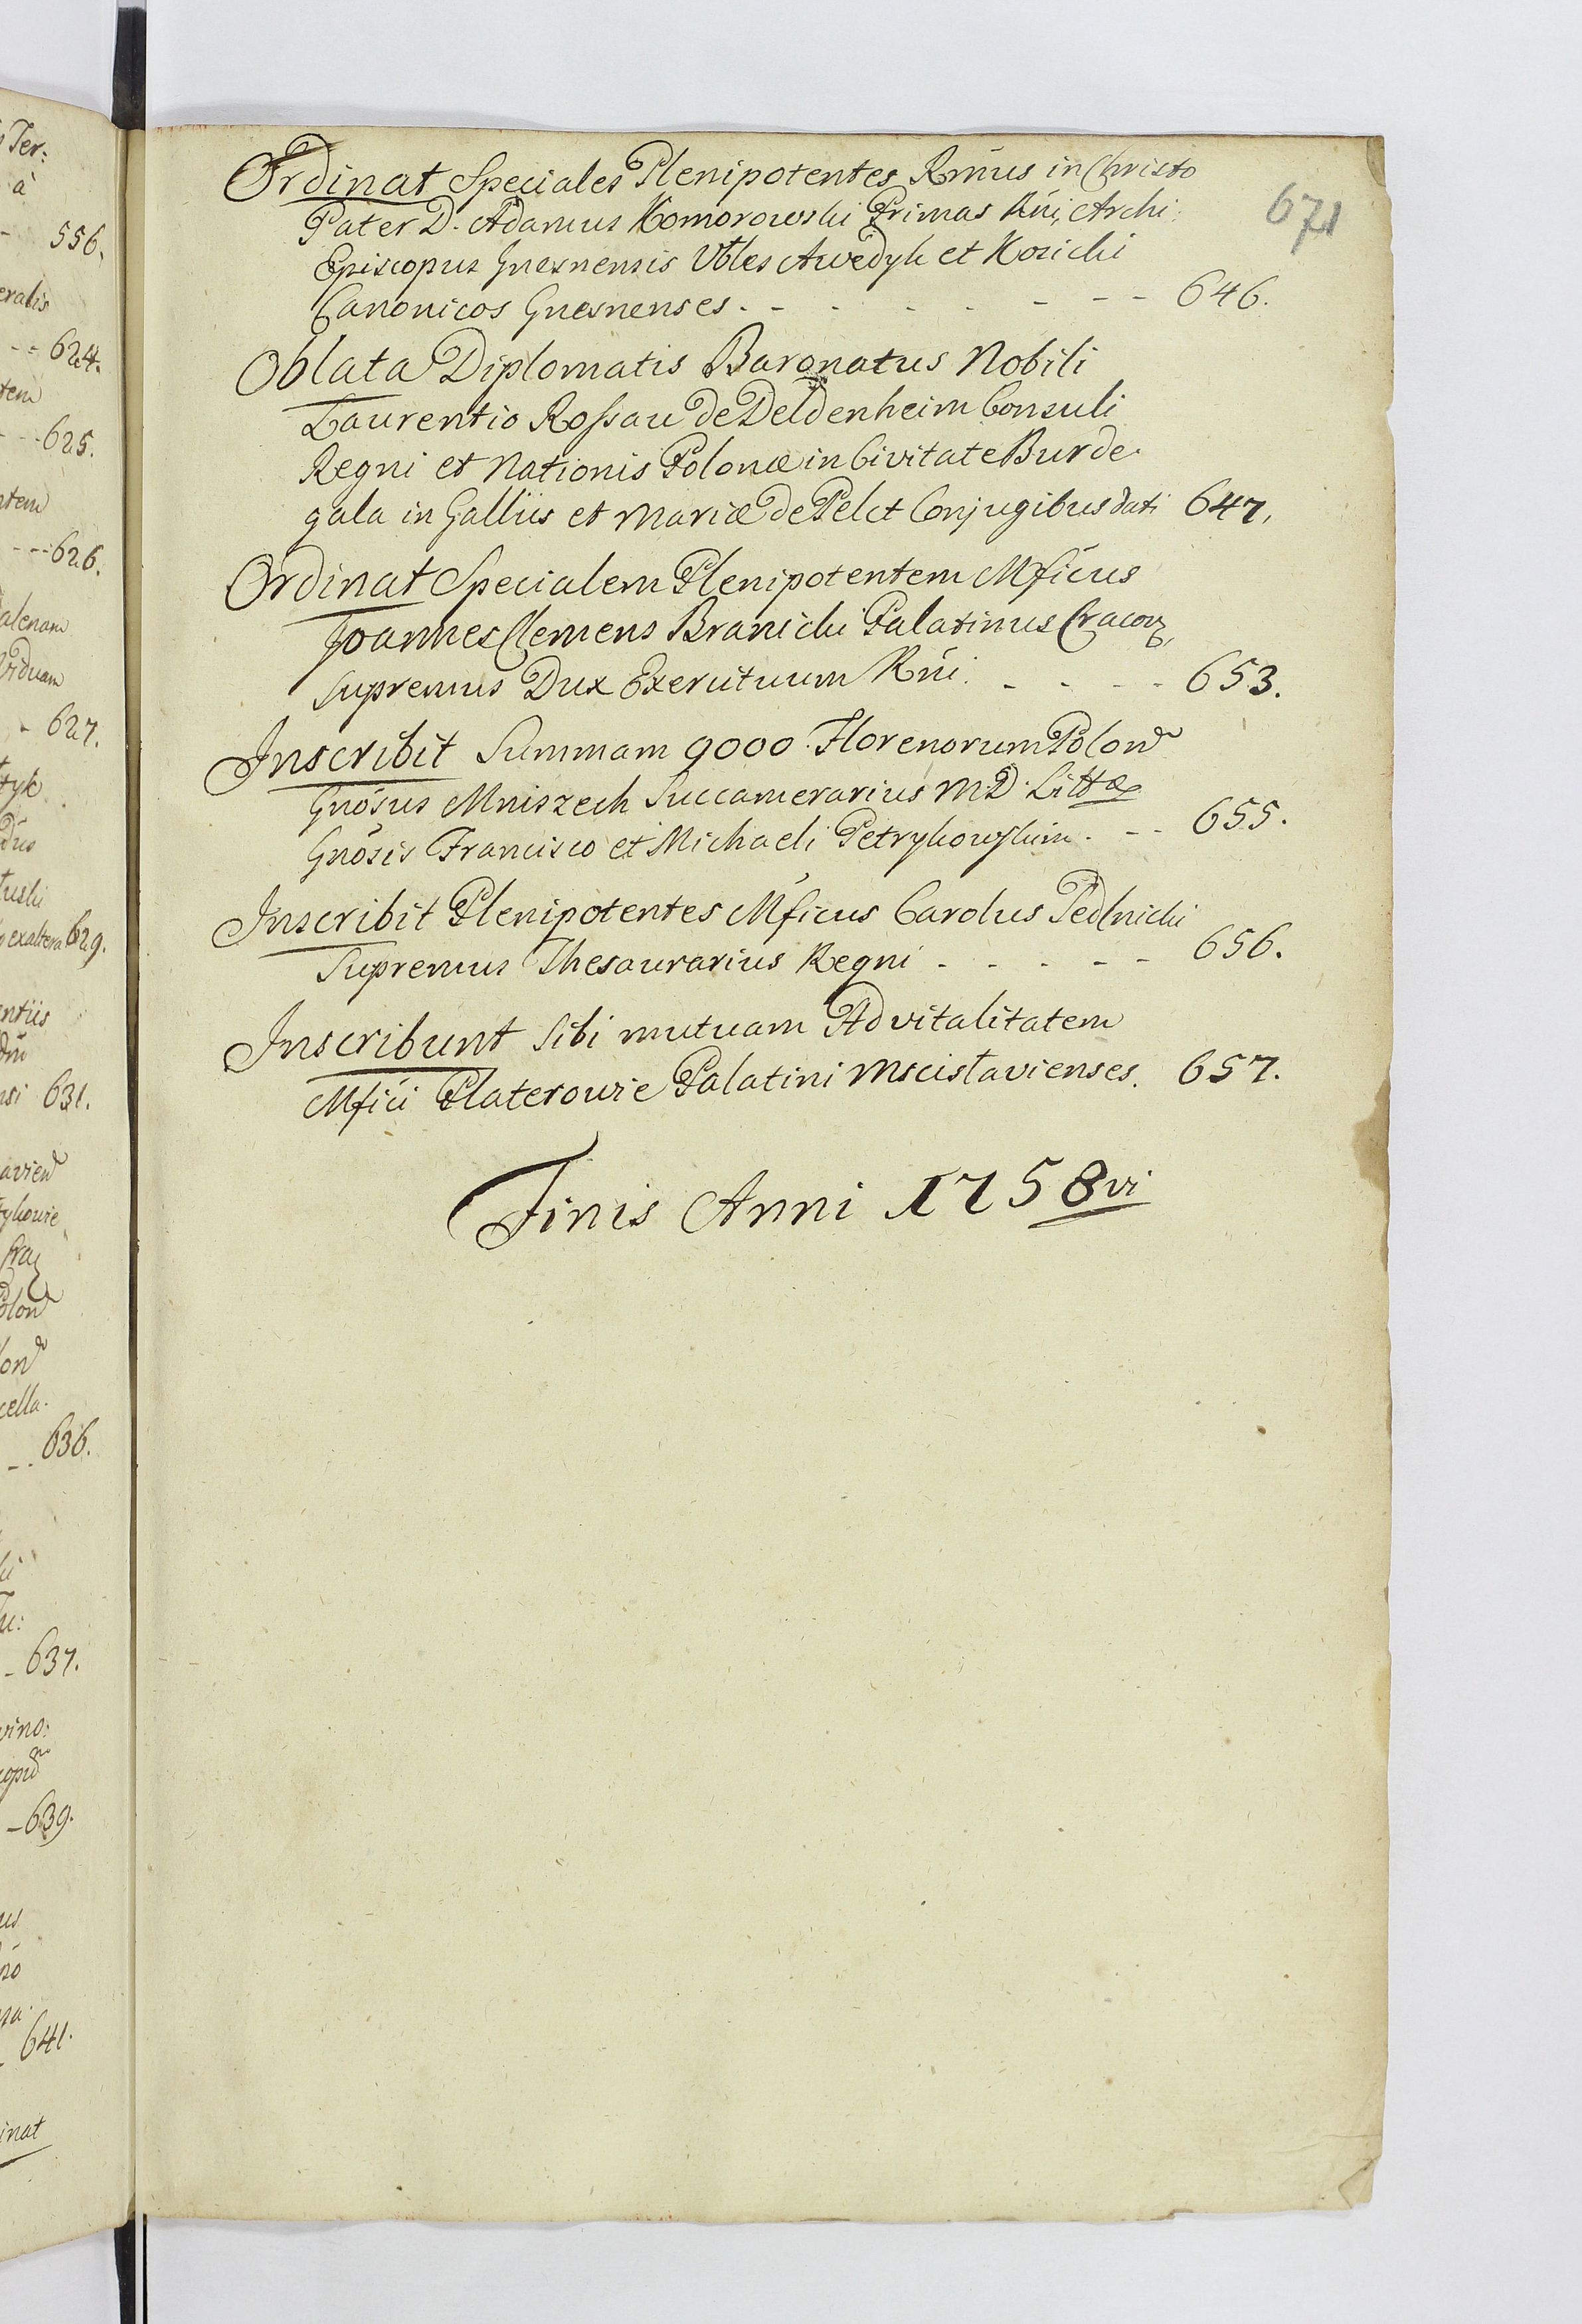 671
Ordinat Speciales Plenipotentes Rm̃us in Christo
Pater D. Adamus Komorowski Primas Rñi, Archi:
Episcopus Gnesnensis Vbles Awedyk et Kosicki
Canonicos Gnesnenses. - - - - - - - 646.
Oblata Diplomatis Baronatus Nobili
Laurentio Roſsau de Deldenheim Consuli
Regni et Nationis Polonæ in Civitate Burde.
gala in Galliis et Mariæ de Pelet Conjugibus dati 647.
Ordinat Specialem Plenipotentem Mficus
Joannes Clemens Branicki Palatinus Cracov,
Supremus Dux Exercituum Rñi. - - - - 653.
Inscribit Summam 9000. Florenorum Polon
Gnosus Mniszech Succamerarius M D. Littæ
Gnosis Francisco et Michaeli Petrykowskim. - - 655.
Inscribit Plenipotentes Mficus Carolus Sedlnicki
Supremus Thesaurarius Regni - - - - - 656.
Inscribunt sibi mutuam Advitalitatem
Mfici Platerowie Palatini Mscislavienses. 657.
Finis Anni 1758vi
556.
624.
625.
626.
627.
629.
631.
636.
637.
639.
641.